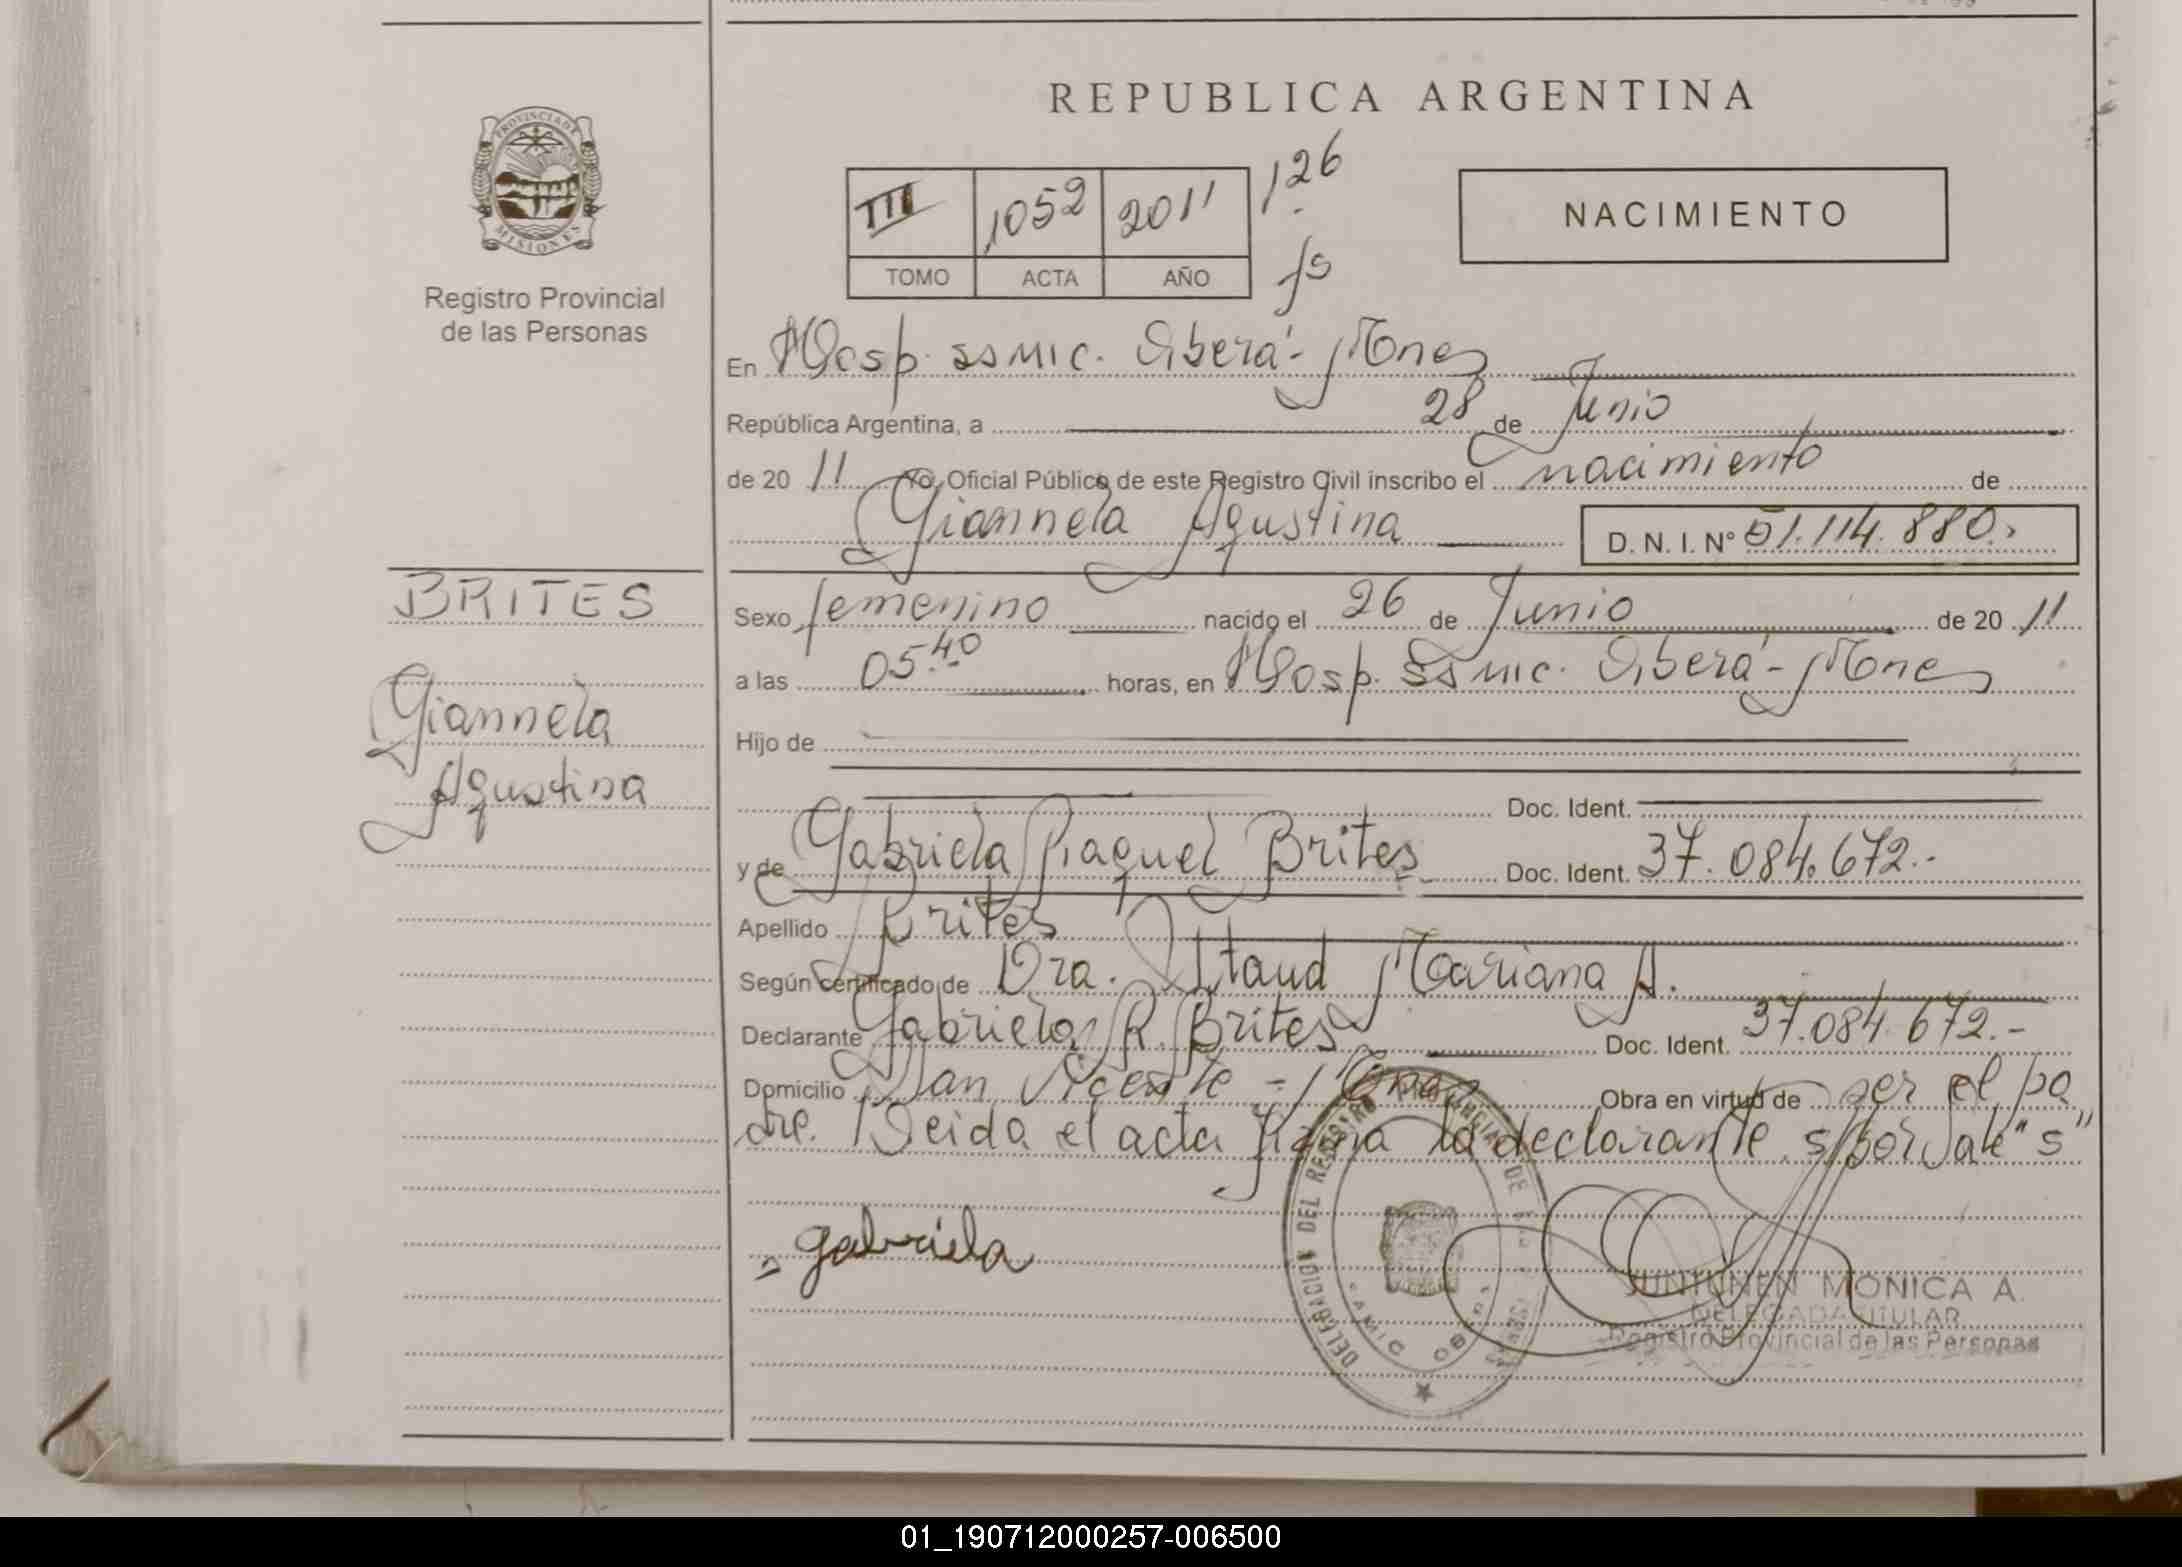 REPUBLICA ARGENTINA
PROVINCIA DE
MISIONES
Registro Provincial
de las Personas
III 1052 2011 126
TOMO ACTA AÑO fs
NACIMIENTO
En Hosp. SSMIC. Oberá - Mnes
República Argentina, a 28 de Junio
de 2011 Yo, Oficial Público de este Registro Civil inscribo el nacimiento de
Giannela Agustina D. N. I. Nº 51.114.880.
BRITES
Giannela
Agustina
Sexo femenino nacido el 26 de Junio de 2011
a las 05.40 horas, en Hosp. SSMIC. Oberá - Mnes
Hijo de
Doc. Ident.
y de Gabriela Raquel Brites Doc. Ident. 37.084.672.-
Apellido Brites
Según certificado de Dra. Staud Mariana A.
Declarante Gabriela R. Brites Doc. Ident. 37.084.672.-
Domicilio San Vicente - Mnes Obra en virtud de ser el pa
dre. Leida el acta firma la declarante s/por Vale "s"
gabriela
DELEGACION DEL REGISTRO PROVINCIAL DE
JUNTUNEN MONICA A.
DELEGADA TITULAR
Registro Provincial de las Personas
01_190712000257-006500